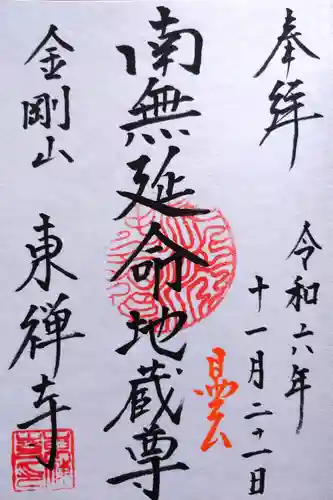 奉拝
令和六年
十一月二十一日
南無延命地蔵尊
金剛山
東禅寺